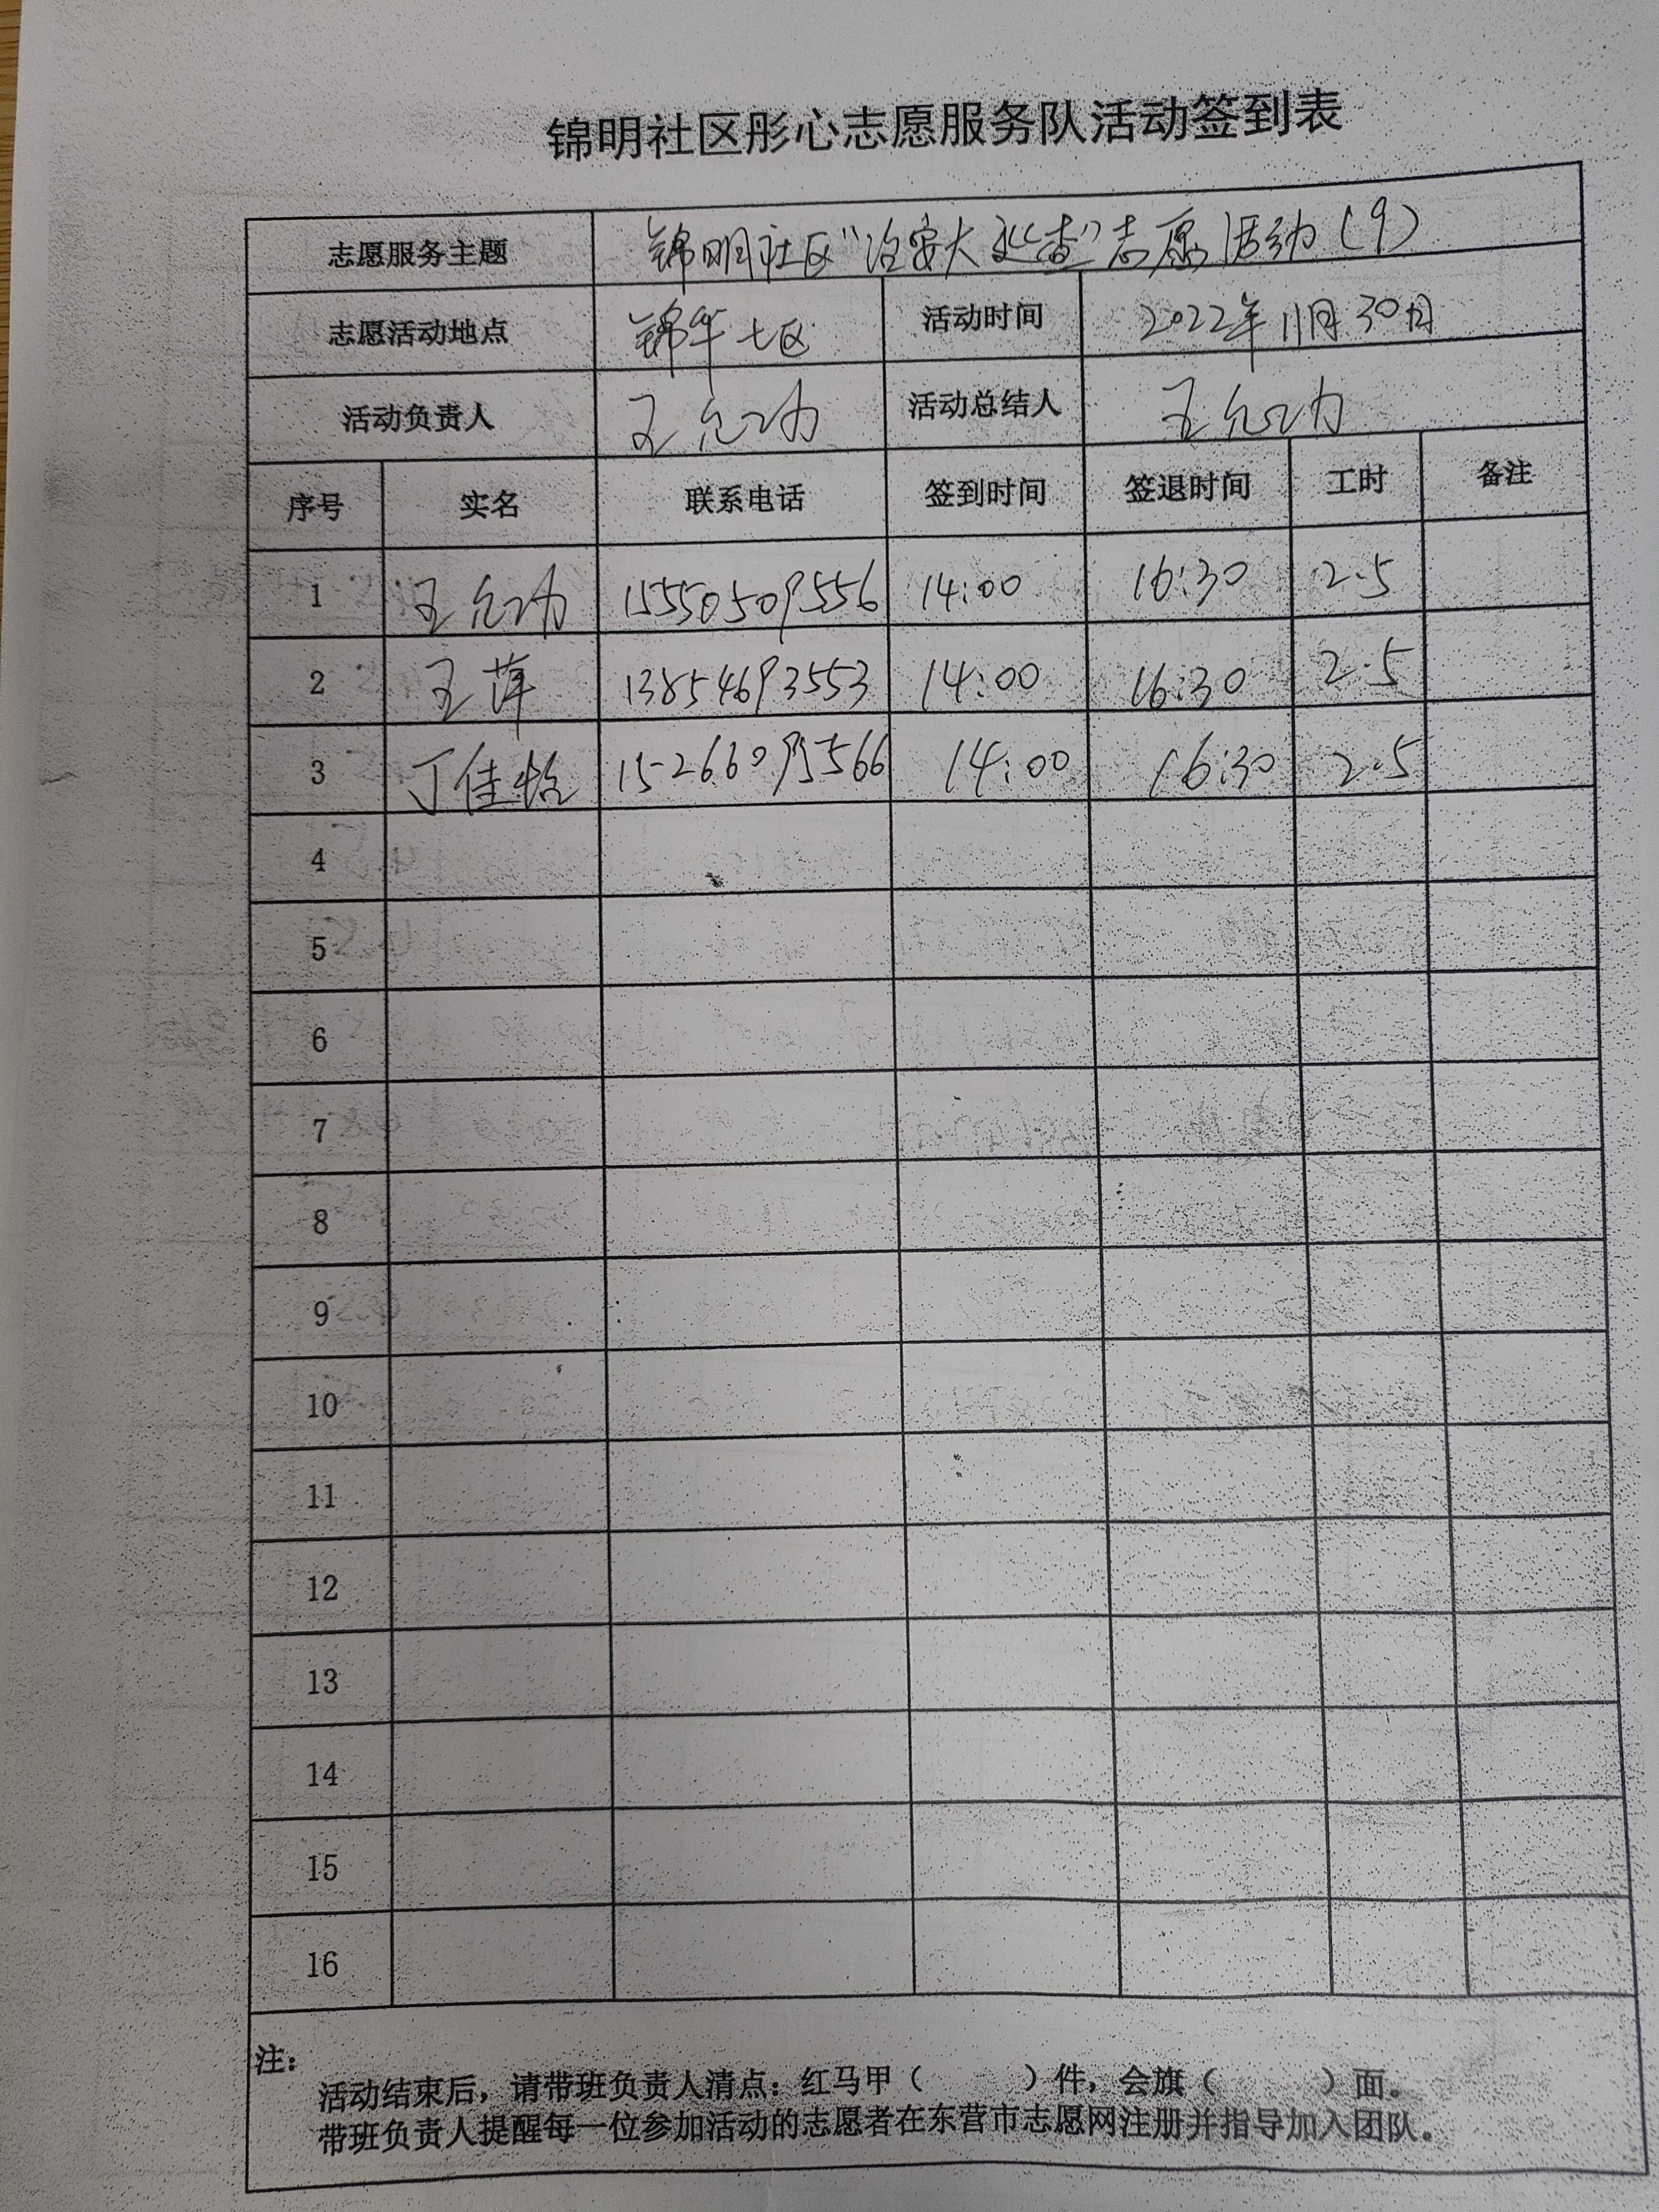 锦明社区彤心志愿服务队活动签到表
志愿服务主题 锦明社区“治安大巡查”志愿活动(9)
志愿活动地点 锦华七区 活动时间 2022年11月30日
活动负责人 王允功 活动总结人 王允功
序号 实名 联系电话 签到时间 签退时间 工时 备注
1 王允功 15550509556 14:00 16:30 2.5
2 王萍 13854693553 14:00 16:30 2.5
3 丁佳怡 15266095566 14:00 16:30 2.5
4
5
6
7
8
9
10
11
12
13
14
15
16
注:
活动结束后,请带班负责人清点:红马甲( )件,会旗( )面。
带班负责人提醒每一位参加活动的志愿者在东营市志愿网注册并指导加入团队。